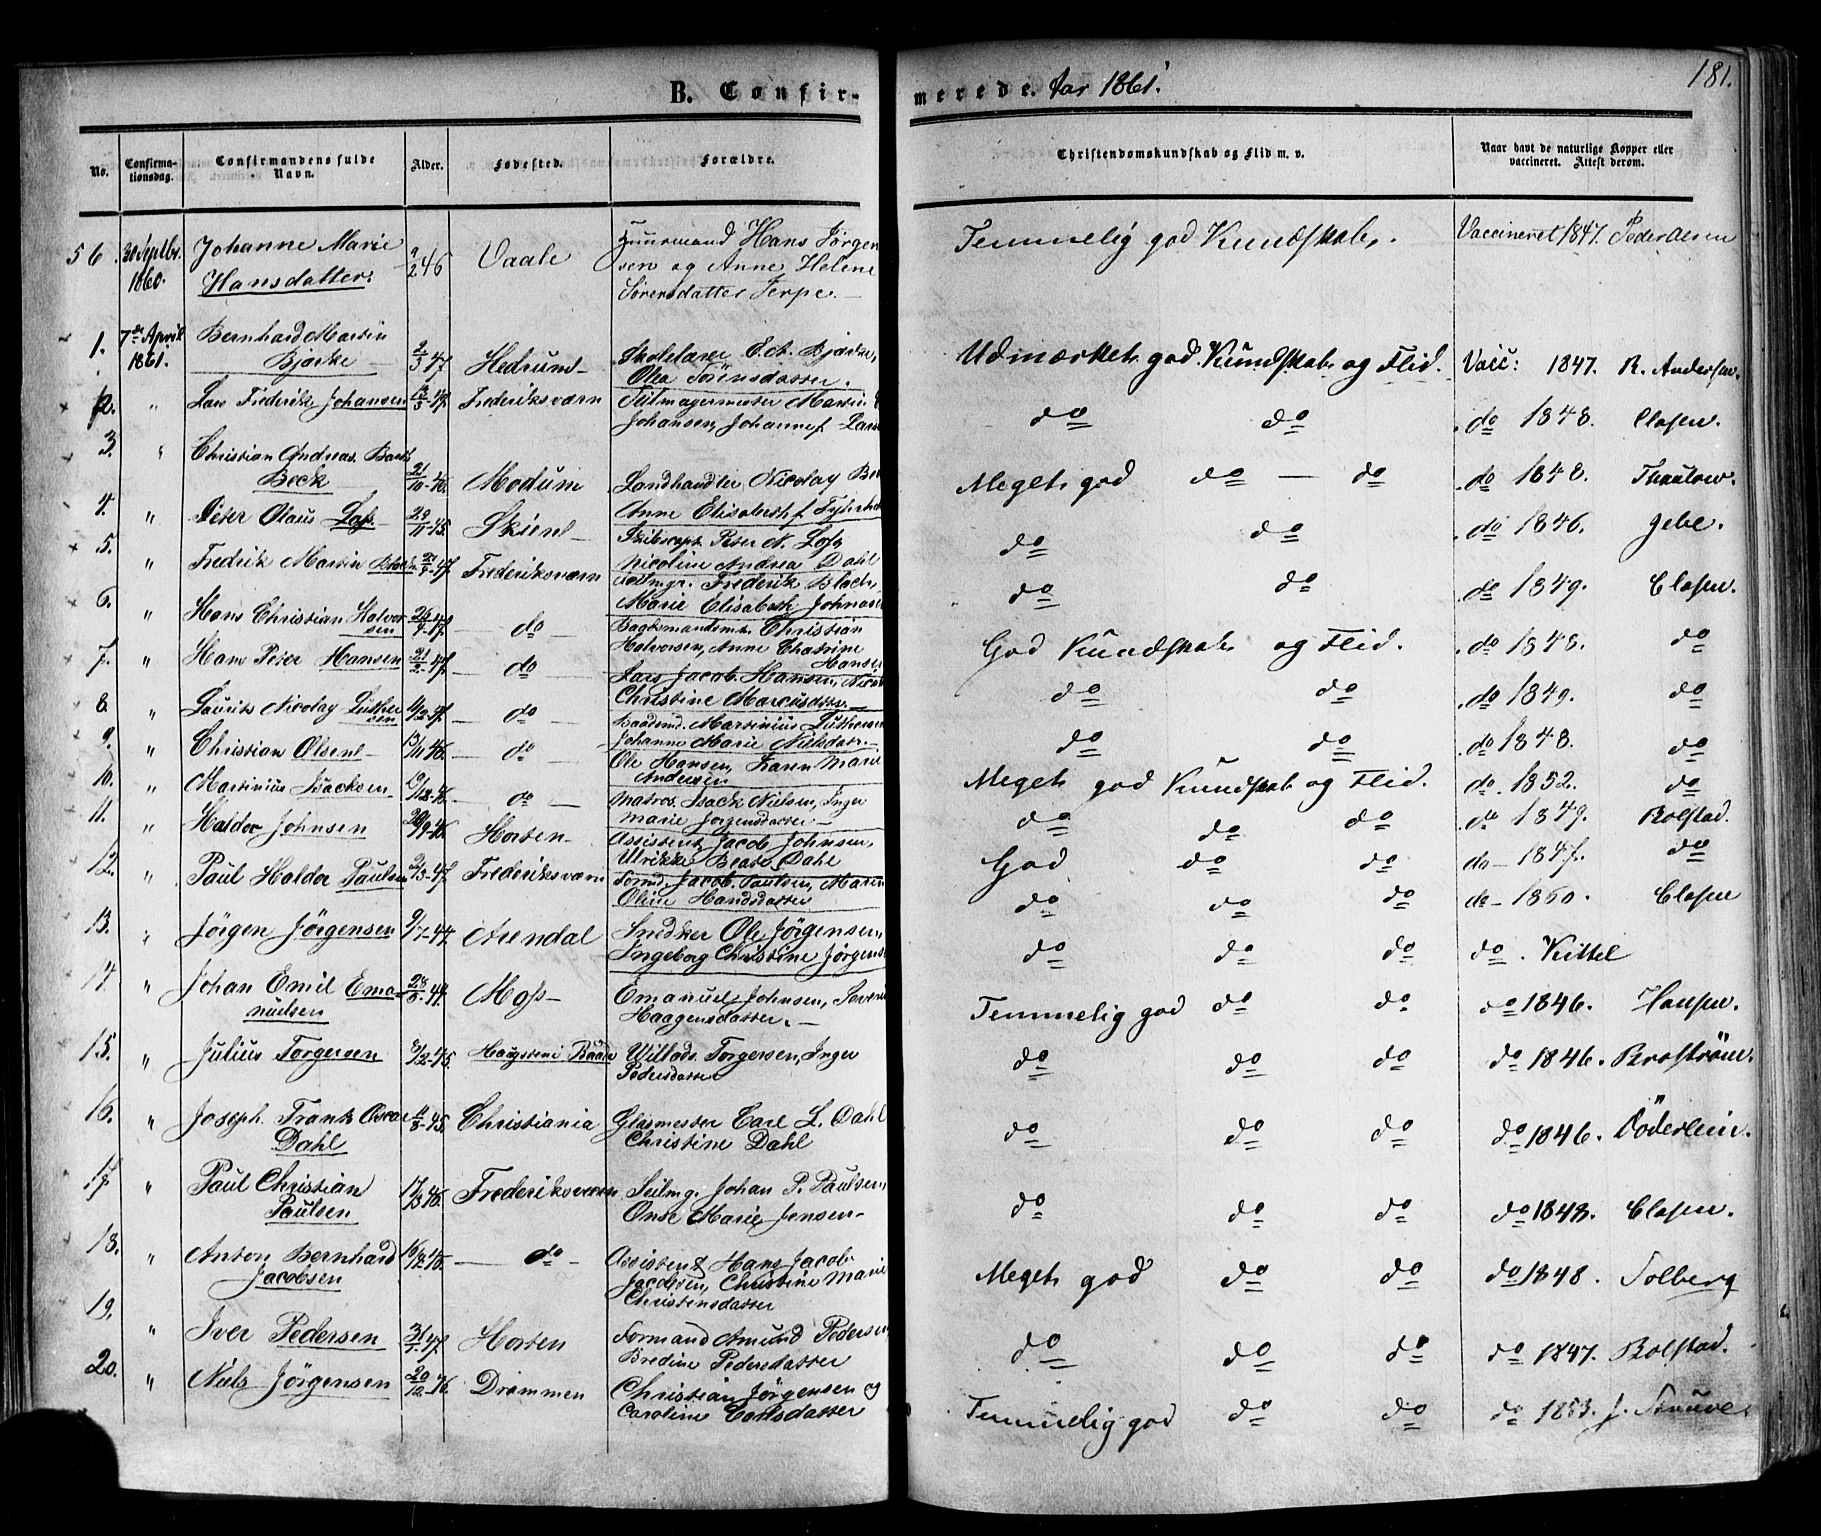 B. Confir-
merede. Aar 1861.
181.
No.
Confirma-
tionsdag.
Confirmandens fulde
Navn.
Alder.
Fødested.
Forældre.
Christendomskundskab og Flid m. v.
Naar havt de naturlige Kopper eller
vaccineret. Attest derom.
56. 30 Septbr. 1860. Johanne Marie 246 Vaale Huusmand Hans Jørgen
Hansdatter. sen og Anne Helene
Sørensdatter Terpe. Temmelig god Kundskab. Vaccineret 1847.
1. 7de April 1861. Bernhard Martin
Bjerke 2/3 47. Hedrum Skolelærer E. A. Bjerke,
Olea Sörensdatter. Udmærket god Kundskab og Flid. Vacc: 1847. R. Andersen.
2. " Lars Frederik Johansen 47. Frederiksværn Seilmagermester Martin
Johansen, Johanne f. do do do 1848. Clasen.
3. " Christian Andreas
Beck 21/10 46. Modum Landhandler Nicolay
Anne Elisabeth f. Meget god do — do do 1848. Thaulow.
4. " Peter Olaus 29/11 45. Skien Skibscapt. Peter N.
Nicoline Andrea Dahl do do do 1846. Jebe.
5. " Fredrik Martin 47. Frederiksværn Seilmgr. Frederik
Marie Elisabeth do do do 1849. Clasen.
6. " Hans Christian Halvor
sen 26/4 47. do Christian
Halvorsen, Anne Chatrine
Hansen God Kundskab og Flid. do 1848. do
7. " Hans Peter Hansen 21/2 47. do Lars Jacob Hansen,
Christine Marcusdatter. do do do 1849. do
8. " Laurits Nicolay Luther
sen do Martinius Luthersen
Johanne Marie Nielsdatr. do do do 1848. do
9. " Christian Olsen 13/11 46. do Ole Hansen, Karen Marie
Andersen Meget god Kundskab og Flid. do 1852. do
10. " Martinius Isacksen 19/12 46. do Matros. Isack Nielsen, Inger
Marie Jørgensdatter do do do do 1849. Rolstad.
11. " Haldor Johnsen 46. Horten Assistent Jacob Johnsen,
Ulrikke Beate Dahl God do do do 1847. do
12. " Paul Haldor Paulsen 47. Frederiksværn Formd. Jacob Paulsen, Maren
Oline Handsdatter do do do do 1860. Clasen
13. " Jörgen Jörgensen 9/7 44. Arendal Snedker Ole Jörgensen,
Ingeborg Christine do do do do. Kittel
14 " Johan Emil Ema-
nuelsen 44. Moss Emanuel Johnsen,
Haagensdatter. Temmelig god do do do 1846. Hansen.
15. " Julius Torgersen 45. Willads. Torgersen, Inger
Pedersdatter do do do do 1846.
16. " Joseph Frantz Oscar
Dahl 45. Christiania Glasmester Carl L. Dahl
Christine Dahl do do do do 1846. Döderlein.
17. " Paul Christian
Paulsen 17/3 46. Frederiksværn Seilmg. Johan P. Paulsen,
Marie Jensen do do do do 1848. Clasen.
18. " Anton Bernhard
Jacobsen 16/12 46. do Assistent Hans Jacob
Jacobsen, Christine Marie
Christensdatter Meget god do do do 1848. Solberg
19. " Iver Pedersen 31/1 47. Horten Formand Amund Pedersen,
Bredine Pedersdatter do do do do 1847. Rolstad.
20. " Niels Jörgensen 20/12 46. Drammen Christian Jörgensen og
Caroline Carlsdatter Temmelig god do do do 1853.